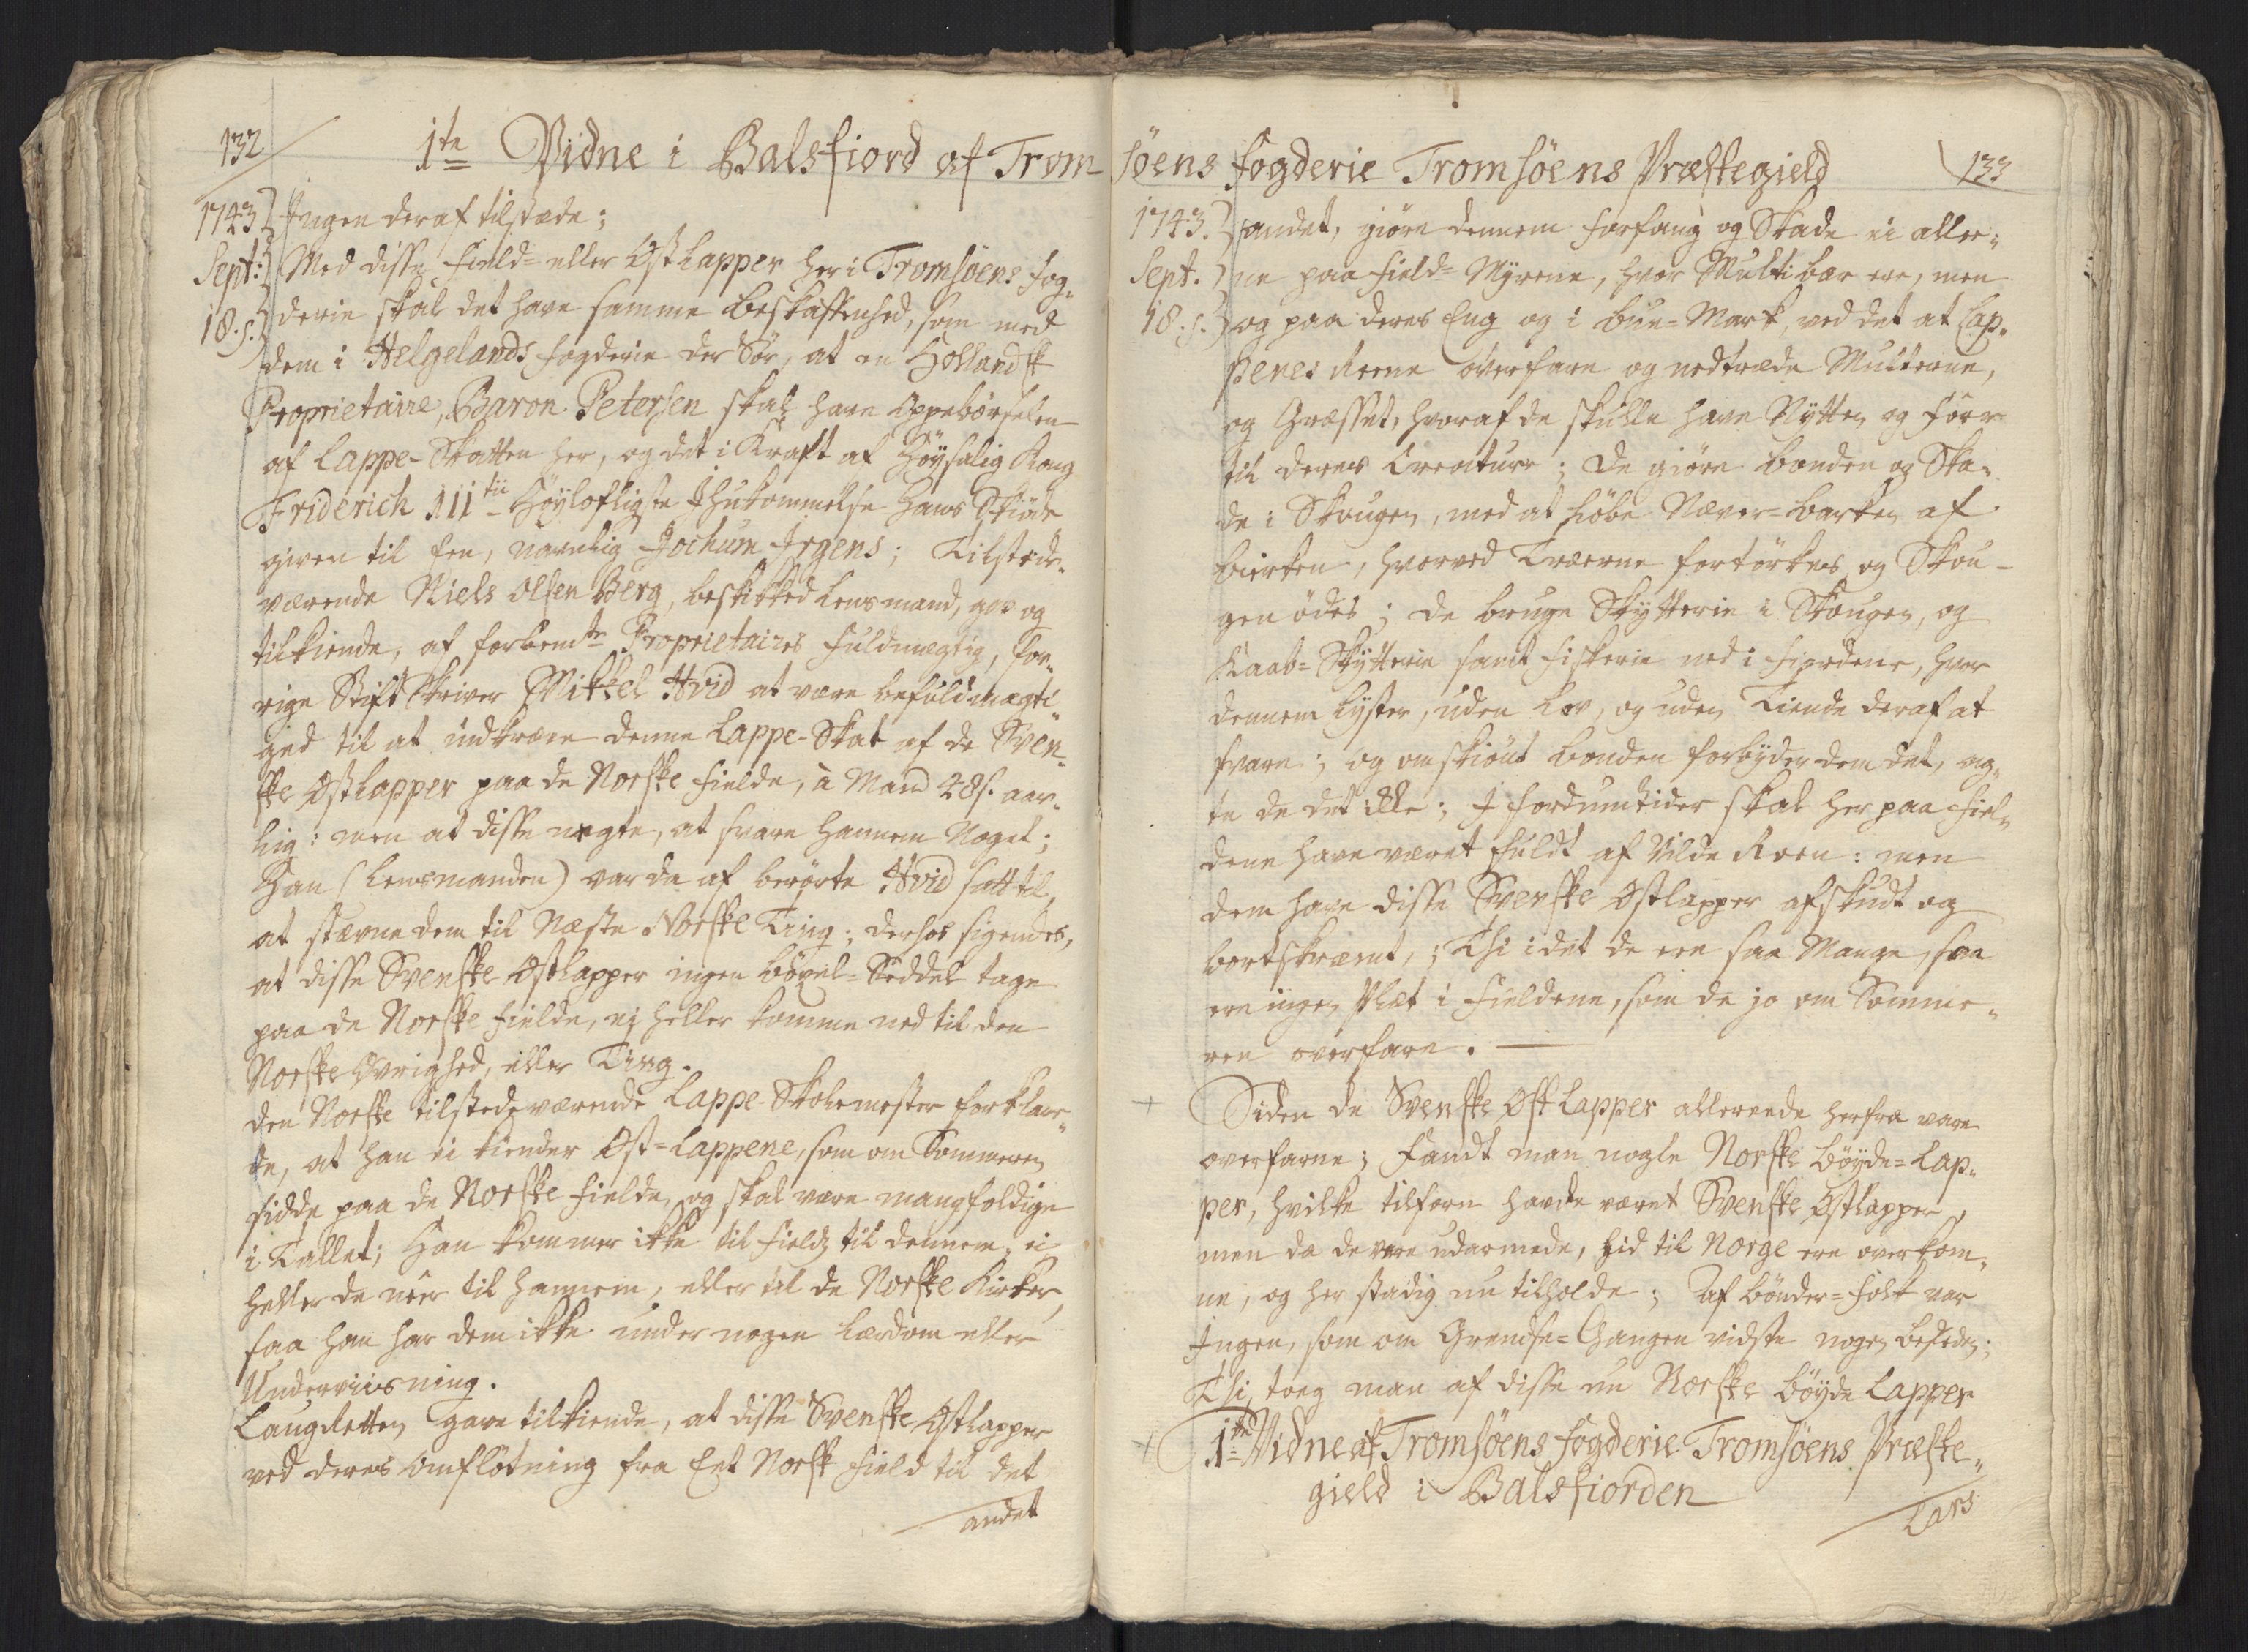 132.
1te Vidne i Balsfiord af Trom
1743 Ingen deraf tilstæde;
Sept: Med disse Field- eller Østlapper her i Tromsøens Fog-
18. s. derie skal det have samme beskaffenhed, som med
dem i Helgelands Fogderie der Sør, at en Hollandsk
Proprietaire, Baron Petersen skal have Oppebørselen
af Lappe-Skatten her, og det i Kraft af Høysalig Kong
Friderich IIItii Høylofligste Ihukommelse Hans Skiøde
given til Een, navnlig Jochum Irgens; Tilstæde-
værende Niels Olsen Berg, beskikked Lensmand, gav og
tilkiende, af forbemte Proprietaires Fuldmægtig, for-
rige Stiftskriver Mikkel Hvid at være befuldmægti-
ged til at indkræve denne Lappe-Skat af de Sven-
ske Østlapper paa de Norske Fielde, à Mand 28 s. aar-
lig: men at disse nægte, at svare hannem Noget;
Han (Lensmanden) var da af berørte Hvid satt til,
at stævne dem til Næste Norske Ting; derhos sigendes,
at disse Svenske Østlapper ingen Böxel-Seddel tage
paa de Norske Fielde, ej heller komme ned til den
Norske Øvrighed, eller Ting.
Den Norske tilstedeværende Lappe-Skolemester forklar-
de, at han ei kiender Øst-Lappene, som om Sommeren
sidde paa de Norske Fielde, og skal være mangfoldige
i Tallet; Han kommer ikke til Fields til dennem, ei
heller de neer til hannem, eller til de Norske Kirker,
saa han har dem ikke under nogen Lærdom eller
Underviisning.
Laugretten gave tilkiende, at disse Svenske Østlapper
ved deres omfløtning fra Eet Norsk Field til det
andet
søens Fogderie Tromsöens Præstegield
133
1743. andet, giøre dennem Forfang og Skade ei aller-
Sept. ne paa Field-Myrene, hvor Multibær ere, men
18. s. og paa deres Eng og i bue-Mark, ved det at Lap-
penes Reene overfare og nedtræde Multerne,
og Græsset, hvoraf de skulle have Nytten og Föer
til deres Creature; De giøre bonden og Ska-
de i Skougen, med at Løbe Næver-barken af
birken, hvorved Træerne fortørkes og Skou-
gen ödes; De bruge Skytterie i Skougen, og
Kaab-Skytterie samt Fiskerie ned i Fiordene, hvor
dennem lyster, uden Lov, og uden Tiende deraf at
svare; og omskiönt bonden forbyder dem det, ag-
te de det ikke; I fordumtider skal her paa Fiel-
dene have været fuldt af Vilde Reen: men
dem have disse Svenske Østlapper afskudt og
bortskræmt,; Thi idet de ere saa Mange, saa
ere ingen Plet i Fieldene, som de jo om Somme-
ren overfare.
+ Siden de Svenske Østlapper allereede herfra vare
overfarne; Fandt man nogle Norske Böyde-Lap-
per, hvilke tilforn havde været Svenske Østlapper,
men da de vare udarmede, hid til Norge ere overkom-
ne, og her stadig nu tilholde; Af bønder-Folk var
Ingen, som om Grendse-Gangen vidste nogen besked;
Thi toeg man af disse nu Norske Böyde Lapper
+ 1te Vidne af Tromsöens Fogderie Tromsöens Præste-
gield i Balsfiorden
Lars